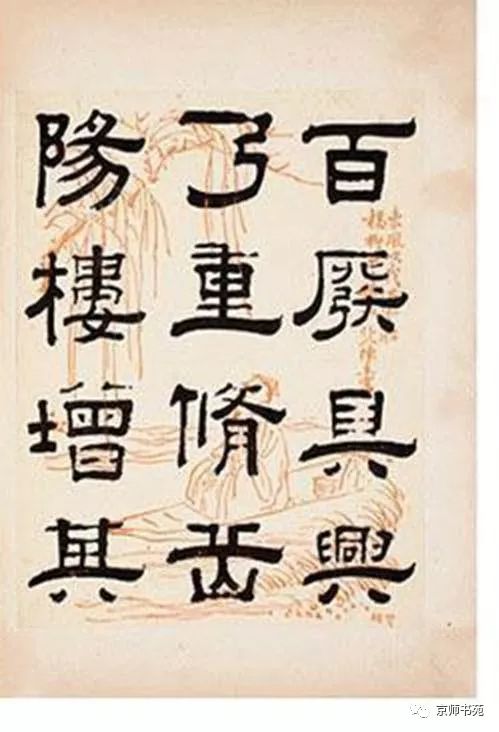 百廢具興
乃重脩岳
陽樓增其
京师书苑